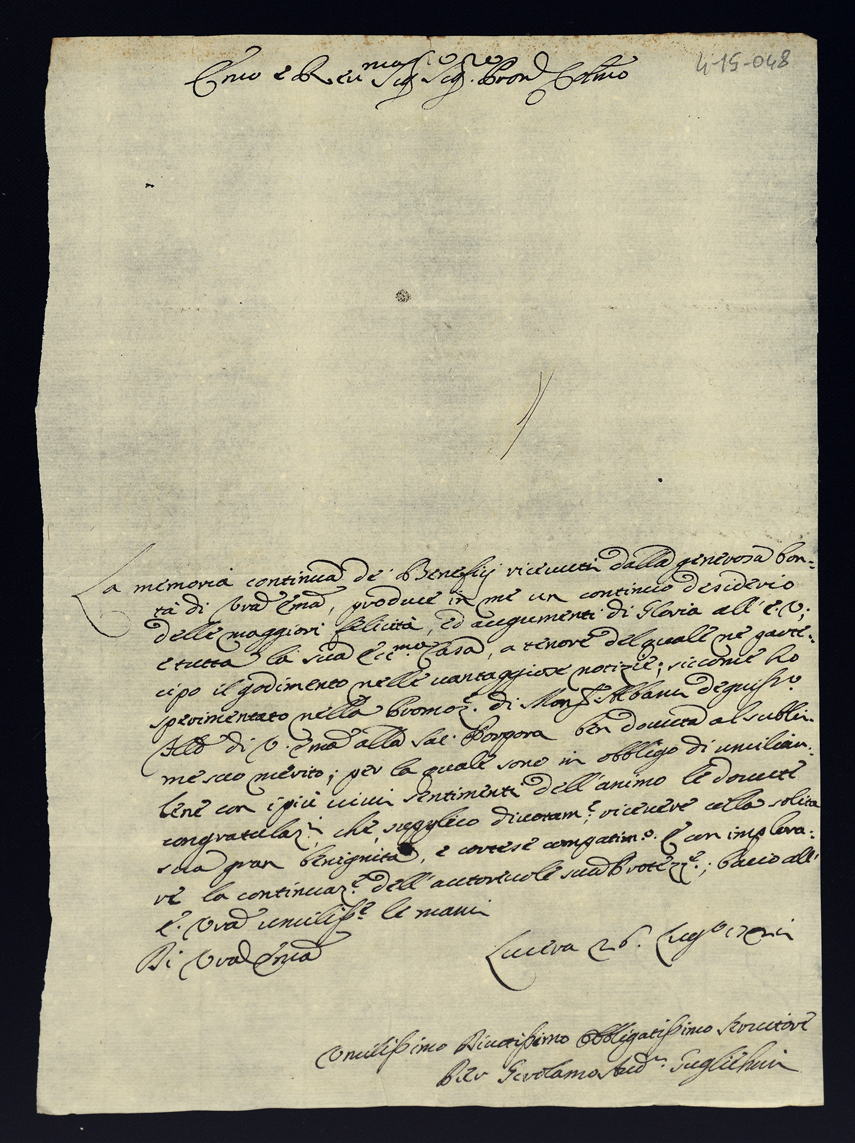 Emo e Reumo Sigre Sigre Pron Colmo
4-15-048
La memoria continua de' Beneficij riceuuti dalla generosa bon-
tà di Vra Emã, produce in me un continuo desiderio
delle maggiori felicità, ed augumenti di Gloria all' E. V;
e tutta la sua Eccma Casa, a tenore del quale ne parte-
cipo il godimento nelle uantaggiose notizie; siccome ho
sperimentato nella Promoz.e di Monsr Albani degniss.o
di V. Emã alla Sac. Porpora ben douuta al subli-
me suo merito; per la quale sono in obbligo di umiliar-
lene con i più uiui sentimenti dell' animo le douute
congratulaz.ni, che supplico diuotam.e riceuere colla solita
sua gran benignità, e cortese compatim.o. E con implora-
re la continuaz.e dell' autoreuole sua Protez.e; bacio all'
E. Vra umiliss.e le mani
Di Vra Emã
26. Lug.o
Umilissimo Diuotissimo Obbligatissimo Seruitore
Pier Girolamo Guglielmi